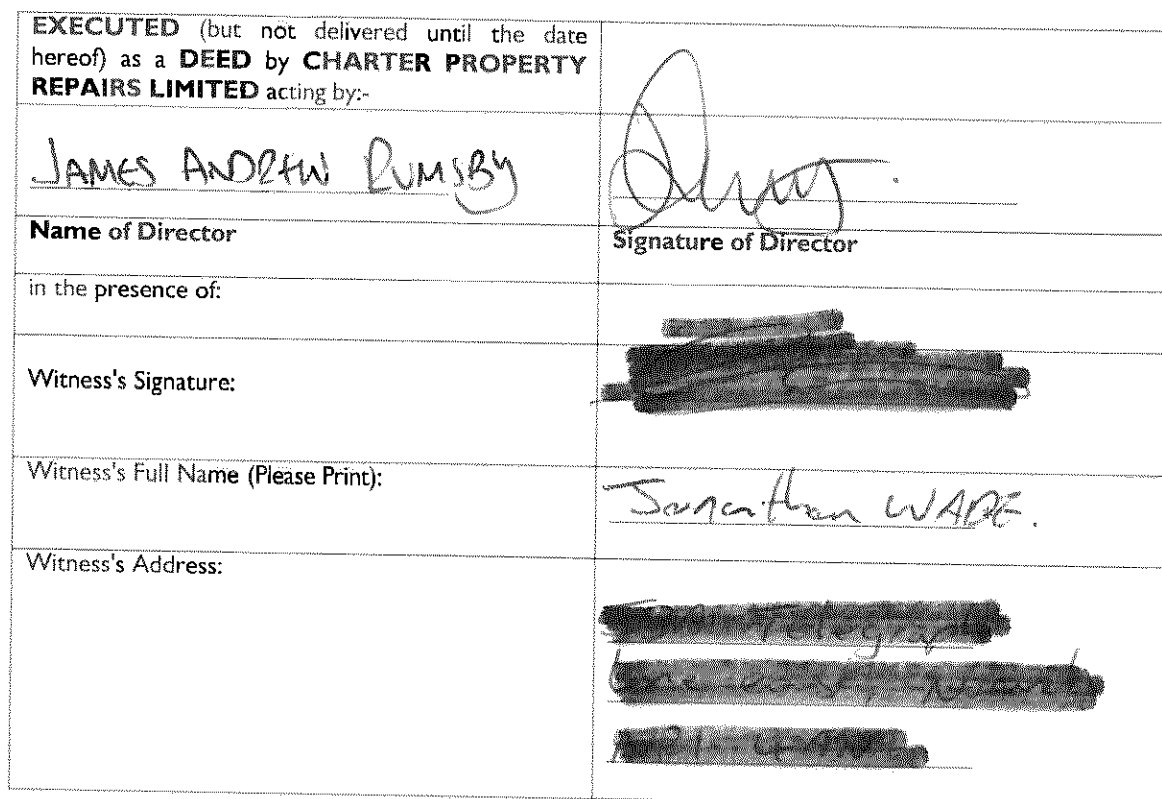 EXECUTED (but not delivered until the date
hereof) as a DEED by CHARTER PROPERTY
REPAIRS LIMITED acting by:-
JAMES ANDREW RUMSBY
Name of Director
Signature of Director
in the presence of:
Witness's Signature:
Witness's Full Name (Please Print):
Jonathan WADE.
Witness's Address: